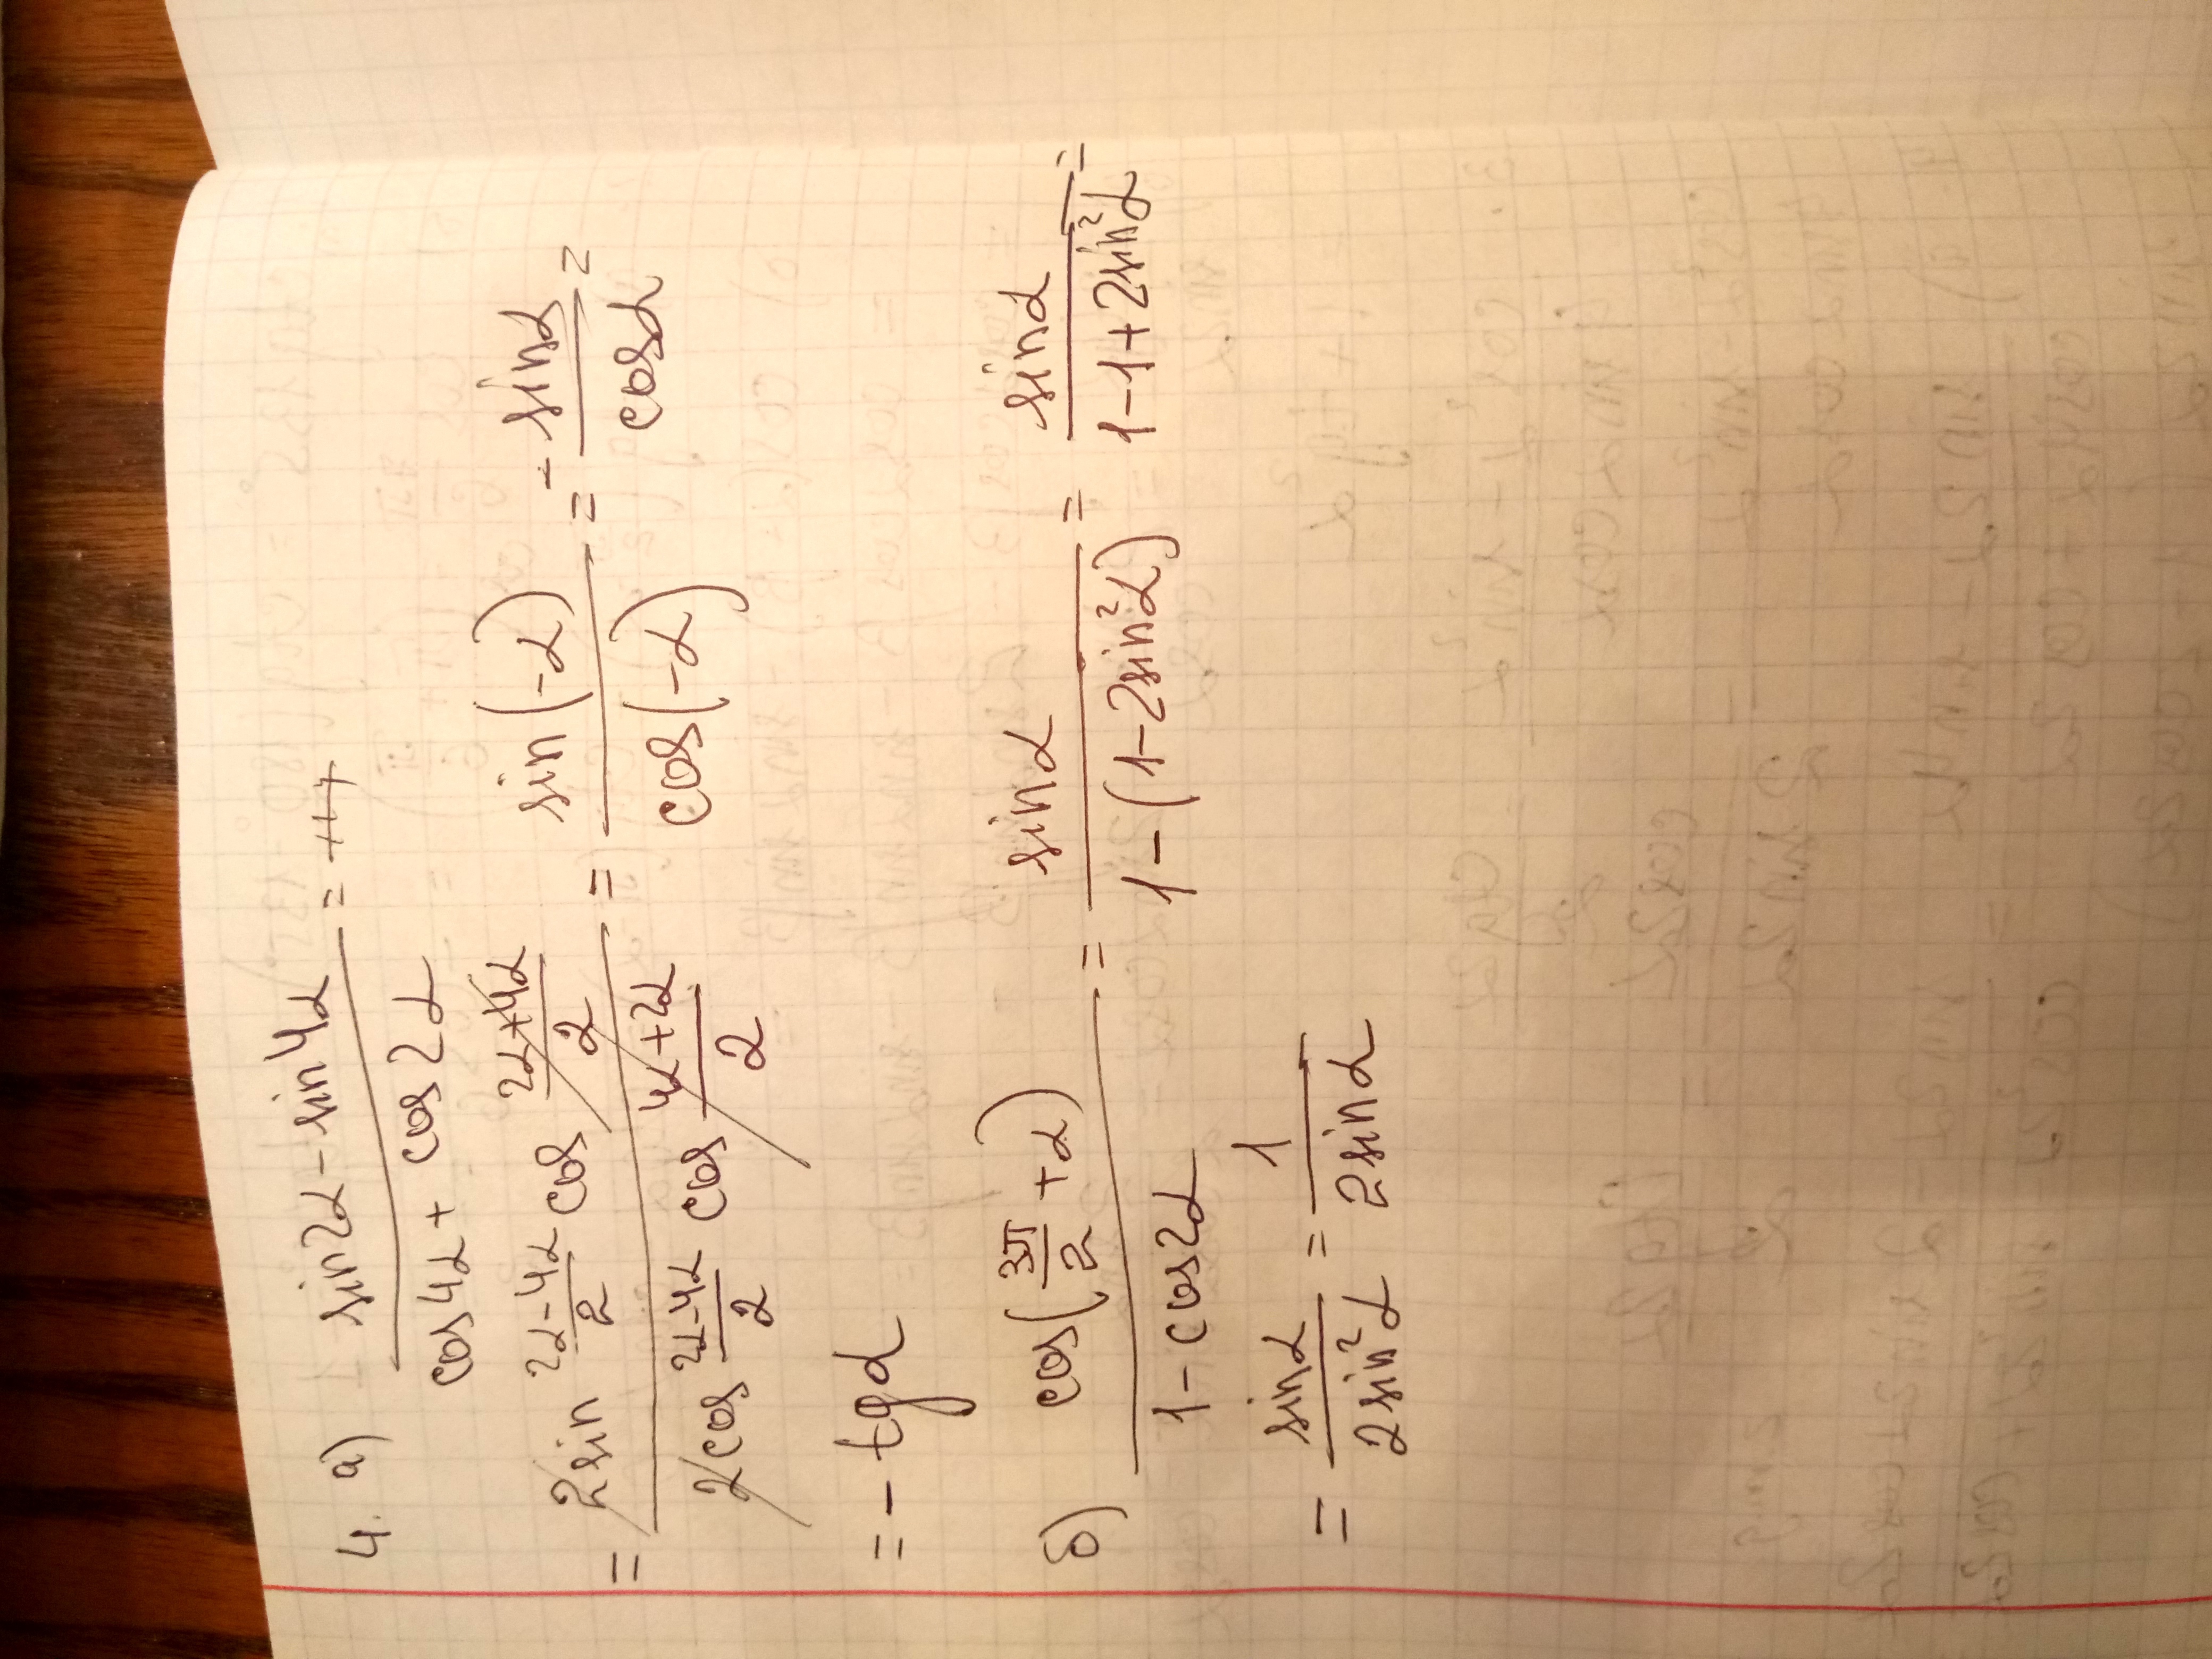 4. а) (sin2α - sin4α)/(cos4α + cos2α) =
= (2sin (2α-4α)/2 cos (2α+4α)/2)/(2cos (2α-4α)/2 cos (4α+2α)/2) = sin(-α)/cos(-α) = - sinα/cosα =
= - tgα
б) cos(3π/2 + α)/(1 - cos2α) = sinα/(1-(1-2sin²α)) = sinα/(1-1+2sin²α) =
= sinα/(2sin²α) = 1/(2sinα)